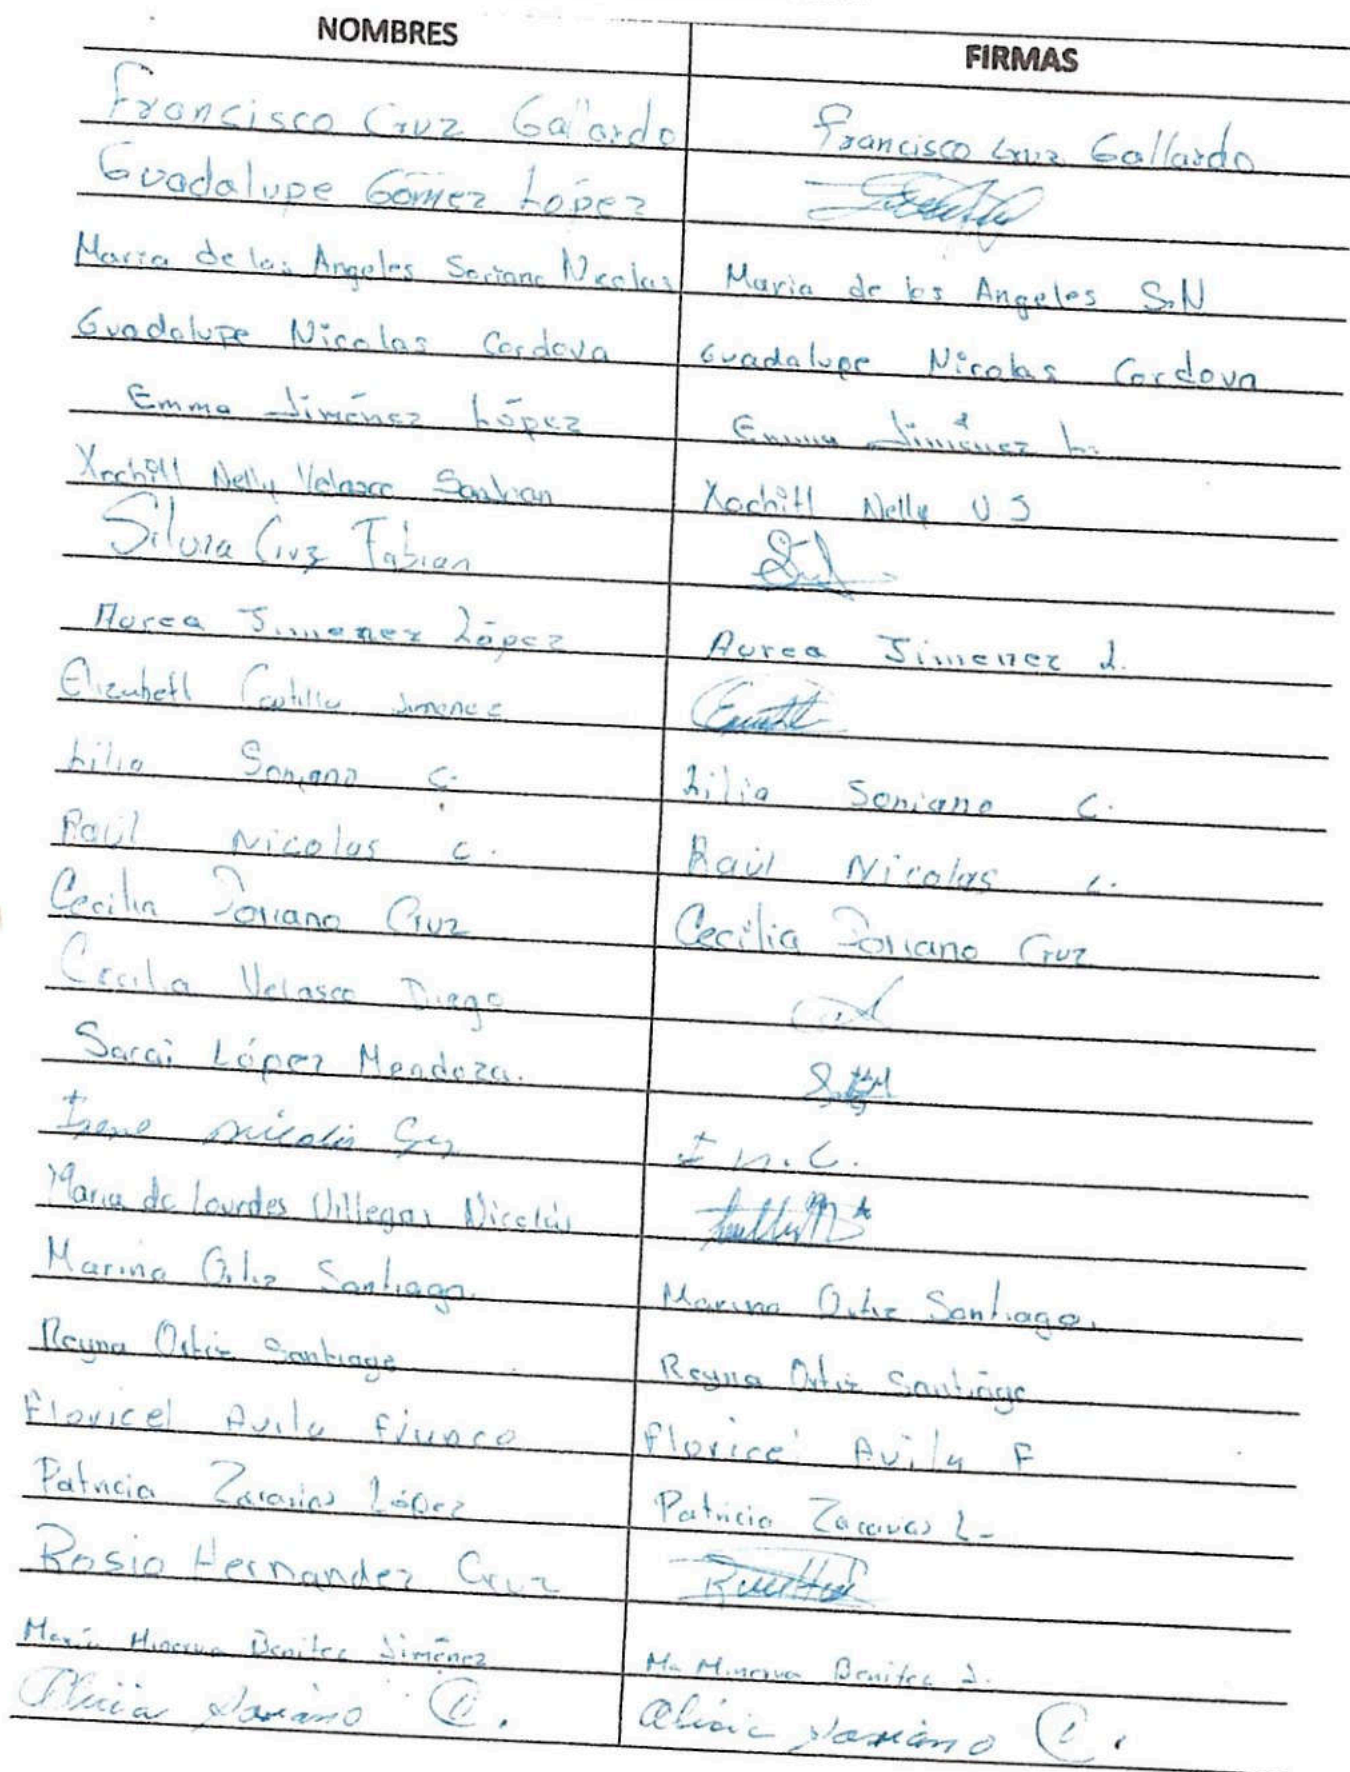 NOMBRES FIRMAS
Francisco Cruz Gallardo Francisco Cruz Gallardo
Guadalupe Gómez López
Maria de los Angeles Soriano Nicolas Maria de los Angeles S.N
Guadalupe Nicolas Cordova Guadalupe Nicolas Cordova
Emma Jiménez López Emma Jiménez L.
Xochitl Nelly Velasco Xochitl Nelly V S
Silvia Cruz Fabian
Aurea Jimenez López Aurea Jimenez L.
Elizabeth Castillo Jimenez
Lilia Soriano C. Lilia Soriano C.
Raúl Nicolas C. Raúl Nicolas C.
Cecilia Soriano Cruz Cecilia Soriano Cruz
Cecilia Velasco Diego
Sarai López Mendoza.
Irene Nicolas I N. C.
Maria de Lourdes Villegas Nicolás
Marina Ortiz Santiago. Marina Ortiz Santiago.
Reyna Ortiz Santiago Reyna Ortiz Santiago
Floricel Avila Floricel Avila F
Patricia Zacarias López Patricia Zacarias L-
Rosio Hernandez Cruz
María Minerva Benitez Jiménez Ma Minerva Benitez J.
Alicia Soriano C. Alicia Soriano C.